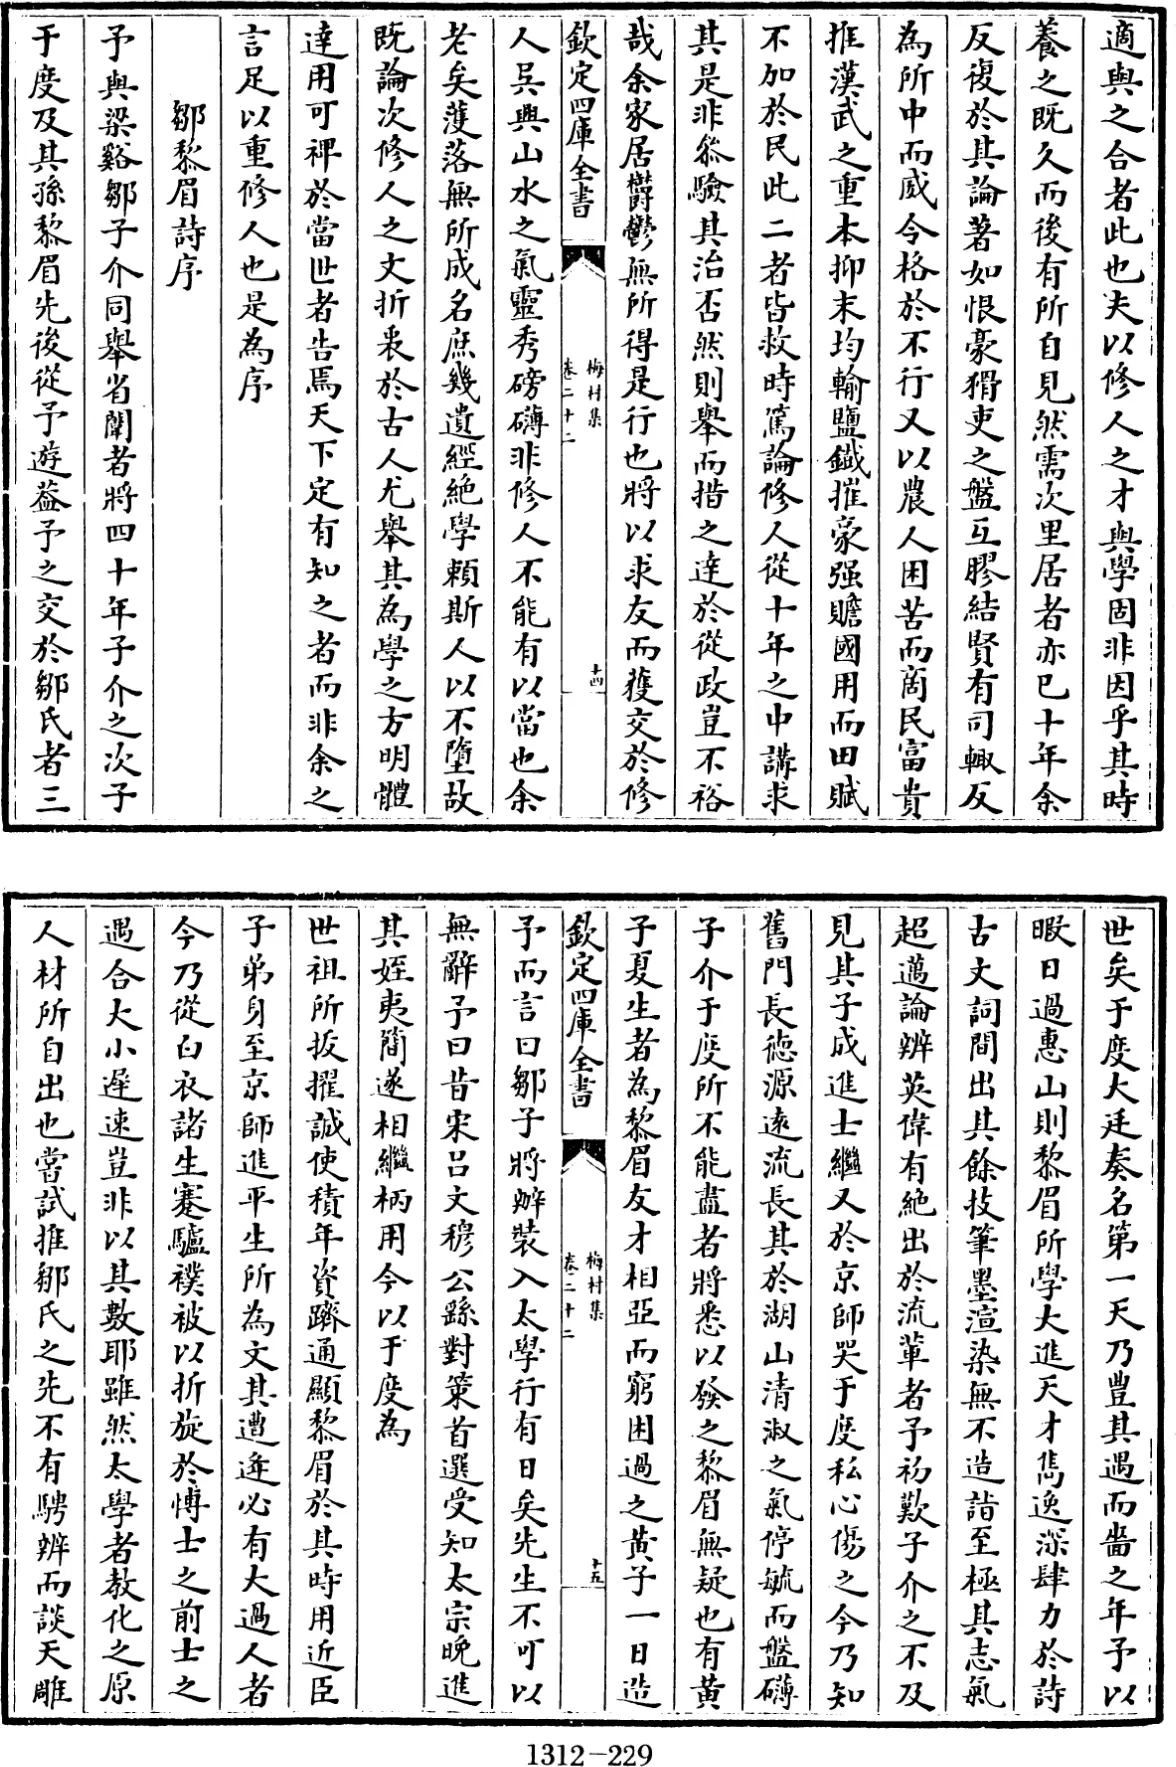 適與之合者此也夫以修人之才與學固非因乎其時
養之既久而後有所自見然需次里居者亦已十年余
反復於其論著如恨豪猾吏之盤互膠結賢有司輙反
為所中而威令格於不行又以農人困苦而商民富貴
推漢武之重本抑末均輸鹽鐵摧豪强贍國用而田賦
不加於民此二者皆救時篤論修人從十年之中講求
其是非叅驗其治否然則舉而措之達於從政豈不裕
哉余家居欝鬱無所得是行也將以求友而獲交於修
欽定四庫全書
梅村集
卷二十二
十四
人吳興山水之氣靈秀磅礴非修人不能有以當也余
老矣濩落無所成名庶幾遺經絶學頼斯人以不墮故
既論次修人之文折衷於古人尤舉其為學之方明體
達用可裨於當世者告焉天下定有知之者而非余之
言足以重修人也是為序
鄒黎眉詩序
予與梁谿鄒子介同舉省闈者將四十年子介之次子
于度及其孫黎眉先後從予遊葢予之交於鄒氏者三
世矣于度大廷奏名第一天乃豐其遇而嗇之年予以
暇日過惠山則黎眉所學大進天才雋逸深肆力於詩
古文詞間出其餘技筆墨渲染無不造詣至極其志氣
超邁論辨英偉有絶出於流輩者予初歎子介之不及
見其子成進士繼又於京師哭于度私心傷之今乃知
舊門長德源遠流長其於湖山清淑之氣停毓而盤礴
子介于度所不能盡者將悉以發之黎眉無疑也有黄
子夏生者為黎眉友才相亞而窮困過之黄子一日造
欽定四庫全書
梅村集
卷二十二
十五
予而言曰鄒子將辦裝入太學行有日矣先生不可以
無辭予曰昔宋吕文穆公繇對策首選受知太宗晩進
其姪夷簡遂相繼柄用今以于度為
世祖所拔擢誠使積年資躋通顯黎眉於其時用近臣
子弟身至京師進平生所為文其遭逢必有大過人者
今乃從白衣諸生蹇驢襆被以折旋於愽士之前士之
遇合大小遲速豈非以其數耶雖然太學者教化之原
人材所自出也嘗試推鄒氏之先不有騁辨而談天雕
1312-229